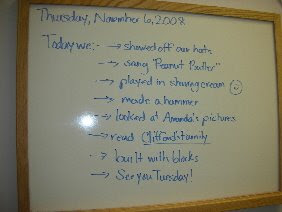 Thursday, November 6, 2008
Today we:- → showed off our hats
→ sang "Peanut Butter"
→ played in shaving cream ☺
→ made a hammer
→ looked at Amanda's pictures
→ read Clifford's Family
→ built with blocks
→ See you Tuesday!